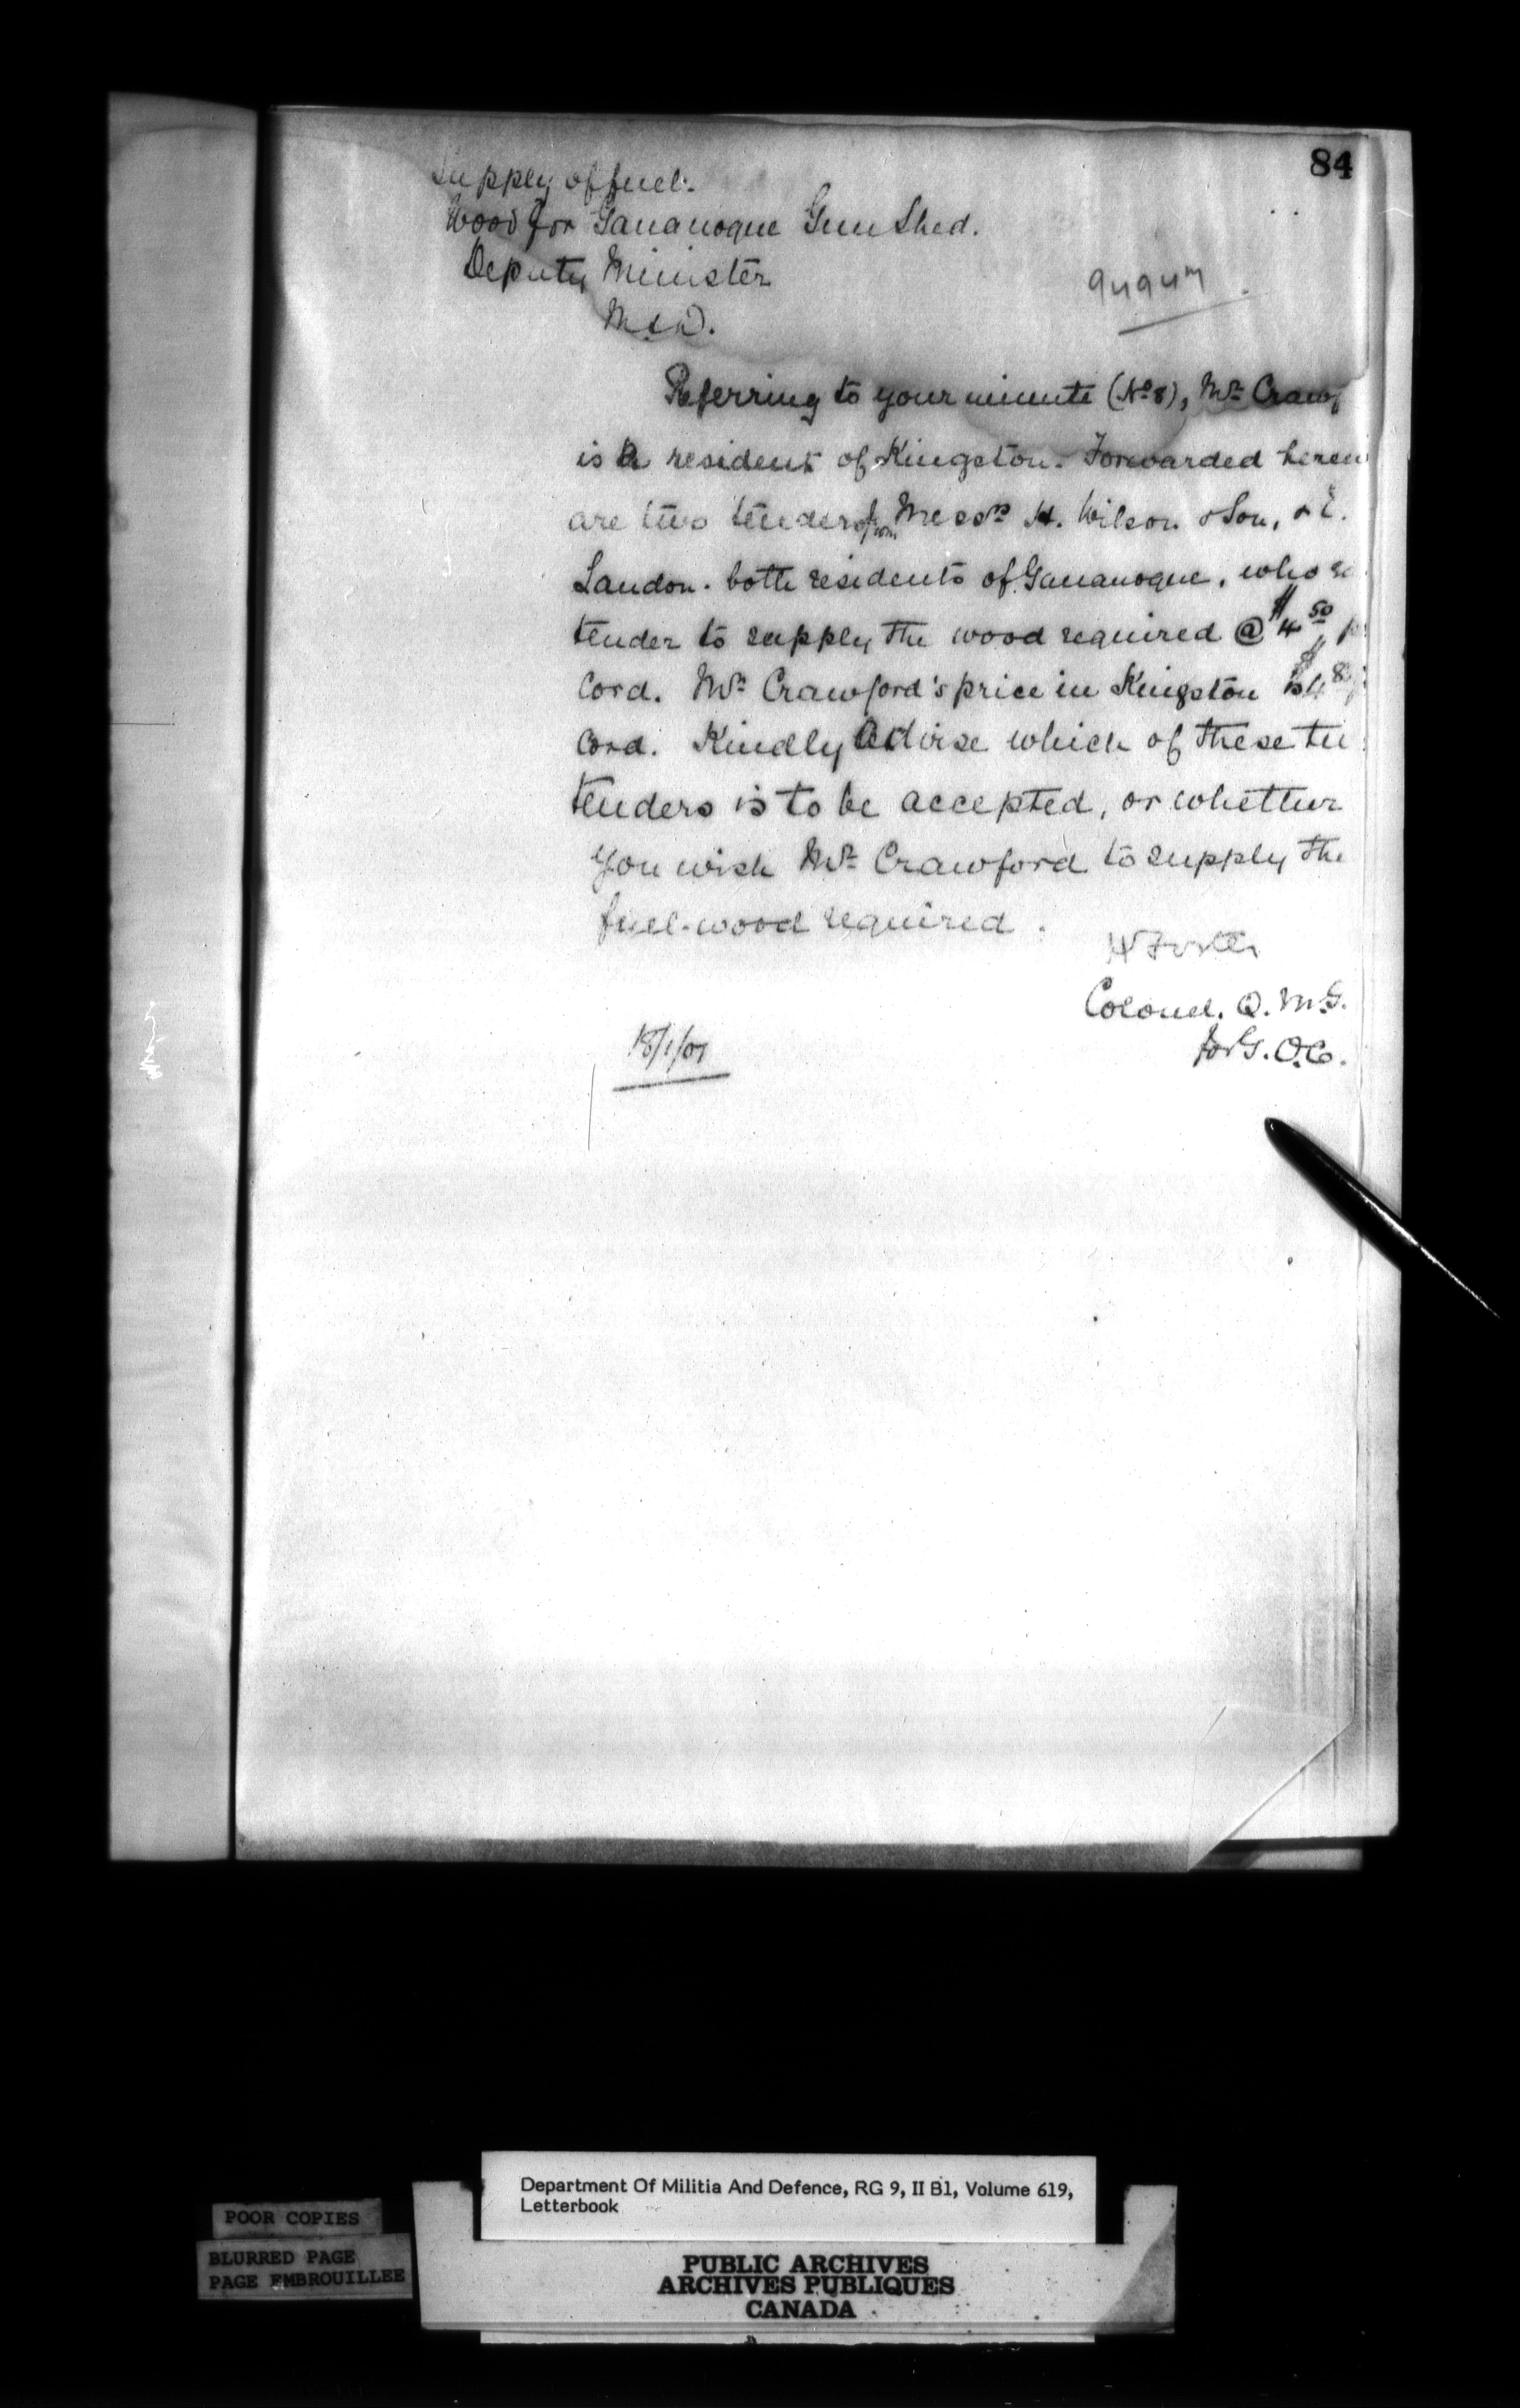 84
Supply of fuel.
Wood for Gananoque Gun Shed.
Deputy Minister
M & D.
Referring to your minute (No 8), Mr Crawf
is a resident of Kingston. Forwarded herew
are two tenders from Messrs H. Wilson & Son, & E.
Landon. both residents of Gananoque, who
tender to supply the wood required @ $4 50
Cord. Mr Crawford's price in Kingston is $4
Cord. Kindly Advise which of these
tenders is to be accepted, or whether
you wish Mr Crawford to supply the
fuel-wood required.
Colonel. Q. M. G.
for G. O. C.
18/1/01
Department Of Militia And Defence, RG 9, II B1, Volume 619,
Letterbook
POOR COPIES
BLURRED PAGE
PAGE EMBROUILLEE
PUBLIC ARCHIVES
ARCHIVES PUBLIQUES
CANADA